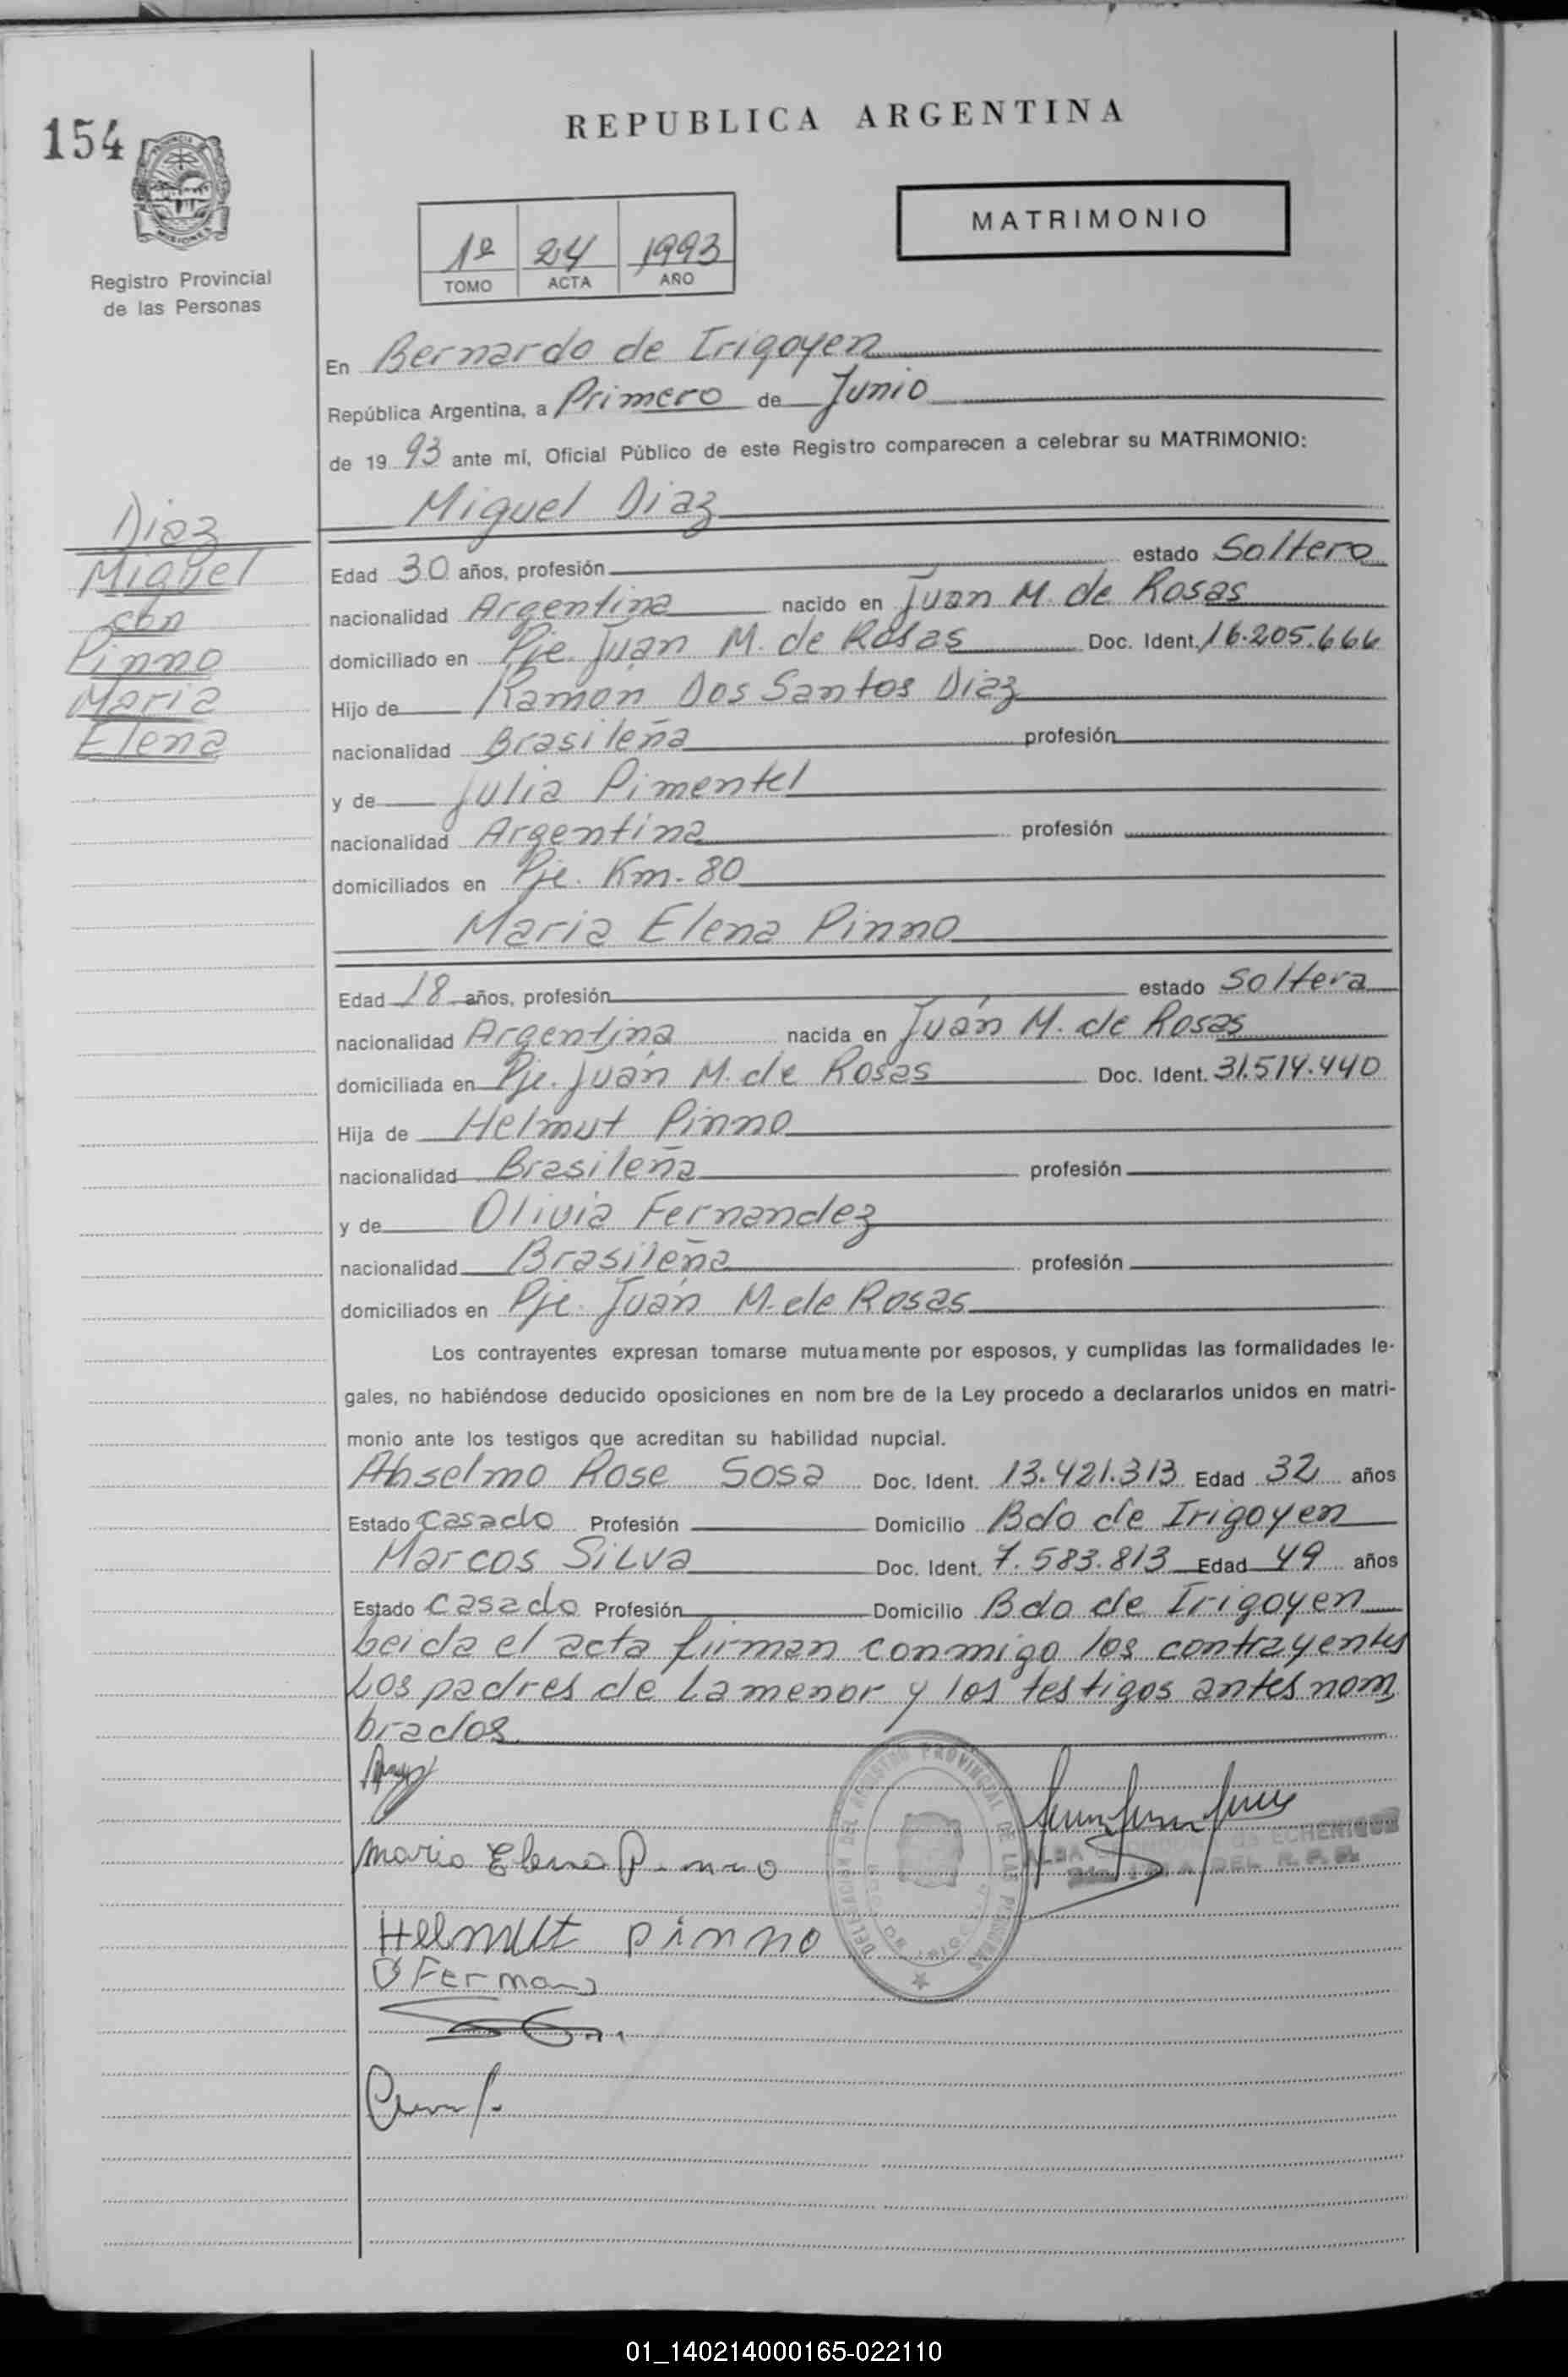 154
REPUBLICA ARGENTINA
MISIONES
Registro Provincial
de las Personas
1º 24 1993
TOMO ACTA AÑO
MATRIMONIO
En Bernardo de Irigoyen
República Argentina, a Primero de Junio
de 1993 ante mí, Oficial Público de este Registro comparecen a celebrar su MATRIMONIO:
Diaz
Miguel
con
Pinno
Maria
Elena
Miguel Diaz
Edad 30 años, profesión estado Soltero
nacionalidad Argentina nacido en Juan M. de Rosas
domiciliado en Pje. Juan M. de Rosas Doc. Ident. 16.205.666
Hijo de Ramon Dos Santos Diaz
nacionalidad Brasileña profesión
y de Julia Pimentel
nacionalidad Argentina profesión
domiciliados en Pje. Km. 80
Maria Elena Pinno
Edad 18 años, profesión estado Soltera
nacionalidad Argentina nacida en Juan M. de Rosas
domiciliada en Pje. Juan M. de Rosas Doc. Ident. 31.514.440
Hija de Helmut Pinno
nacionalidad Brasileña profesión
y de Olivia Fernandez
nacionalidad Brasileña profesión
domiciliados en Pje. Juan M. de Rosas
Los contrayentes expresan tomarse mutuamente por esposos, y cumplidas las formalidades le-
gales, no habiéndose deducido oposiciones en nom bre de la Ley procedo a declararlos unidos en matri-
monio ante los testigos que acreditan su habilidad nupcial.
Anselmo Rose Sosa Doc. Ident. 13.421.313 Edad 32 años
Estado Casado Profesión Domicilio Bdo de Irigoyen
Marcos Silva Doc. Ident. 7.583.813 Edad 49 años
Estado Casado Profesión Domicilio Bdo de Irigoyen
Leida el acta firman conmigo los contrayentes
Los padres de La menor y los testigos antes nom
brados
DELEGACION DEL REGISTRO PROVINCIAL DE LAS PERSONAS
ALBA de ECHENIQUE
DEL R. P. P.
Maria Elena Pinno
Helmut Pinno
O Fernan
01_140214000165-022110